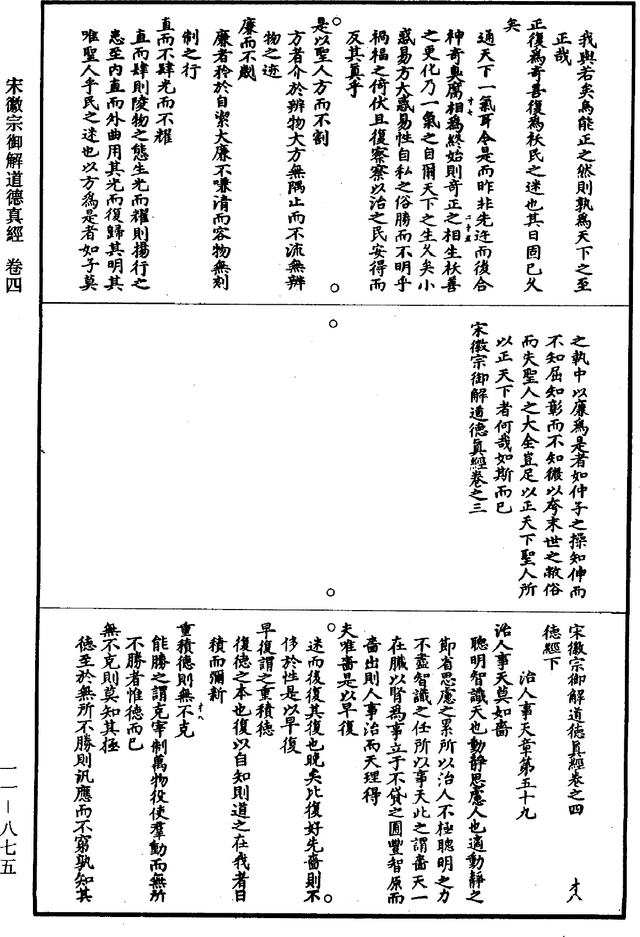 我與若矣烏能正之然則孰爲天下之至
正哉
正復爲奇善復爲祅民之迷也其日固已久
矣
通天下一氣耳今是而昨非先迕而後合
神奇臭腐相爲終始則奇正之相生祅善
之更化乃一氣之自爾天下之生久矣小
惑易方大惑易性自私之俗勝而不明乎
禍福之倚伏且復察察以治之民安得而
反其真乎
是以聖人方而不割
方者介於辨物大方無隅止而不流無辨
物之迹
廉而不劌
廉者矜於自潔大廉不嗛清而容物無刻
制之行
直而不肆光而不耀
直而肆則陵物之態生光而耀則揚行之
患至内直而外曲用其光而復歸其明其
唯聖人乎民之迷也以方爲是者如子莫
之執中以廉爲是者如仲子之操知伸而
不知屈知彰而不知微以夸末世之敝俗
而失聖人之大全豈足以正天下聖人所
以正天下者何哉如斯而已
宋徽宗御解道德真經卷之三
宋徽宗御解道德真經卷之四
才八
德經下
治人事天章第五十九
治人事天莫如嗇
聰明智識天也動靜思慮人也適動靜之
節省思慮之累所以治人不極聰明之力
不盡智識之任所以事天此之謂嗇天一
在臟以腎爲事立于不貸之圃豐智原而
嗇出則人事治而天理得
夫唯嗇是以早復
迷而後復其復也晚矣比復好先嗇則不
侈於性是以早復
早復謂之重積德
復德之本也復以自知則道之在我者日
積而彌新
重積德則無不克
能勝之謂克宰制萬物役使羣動而無所
不勝者惟德而已
無不克則莫知其極
德至於無所不勝則汎應而不窮孰知其
宋徽宗御解道德真經 卷四
一一－八七五